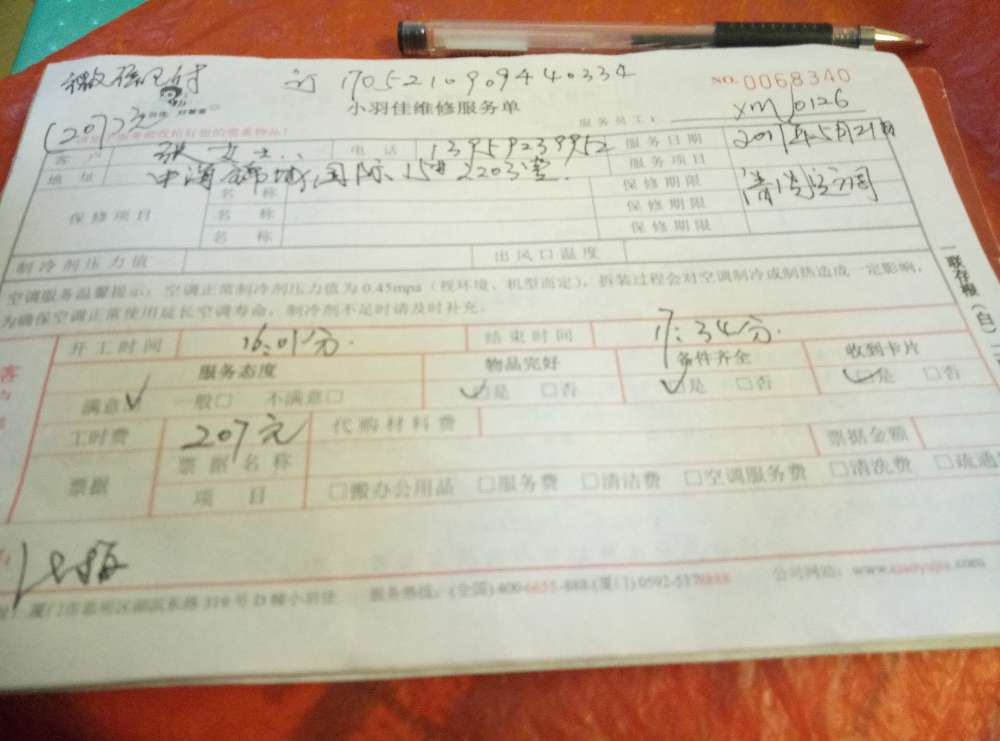 微信已付 订 1705210909440334 NO. 0068340
(207)元 小羽佳维修服务单
服务员工: xm0126
客户 张女士 电话 13959239952 服务日期 2017年5月21日
地址 国际15 2203室 服务项目 清洗空调
保修项目 名称 保修期限
名称 保修期限
名称 保修期限
制冷剂压力值 出风口温度
空调服务温馨提示:空调正常制冷剂压力值为 0.45mpa(视环境、机型而定),拆装过程会对空调制冷或制热造成一定影响,
为确保空调正常使用延长空调寿命,制冷剂不足时请及时补充。
一联存根(白)
开工时间 16:01分. 结束时间 17:34分
服务态度 物品完好 备件齐全 收到卡片
满意☑ 一般□ 不满意□ ☑是 □否 ☑是 □否 ☑是 □否
工时费 207元 代购材料费 票据金额
票据 票据名称
项目 □搬办公用品 □服务费 □清洁费 □空调服务费 □清洗费 □疏通
厦门市思明区湖滨东路319号D幢小羽佳 服务热线:(全国)400-6655-888(厦门)0592-5178888 公司网站:www.xiaoyujia.com